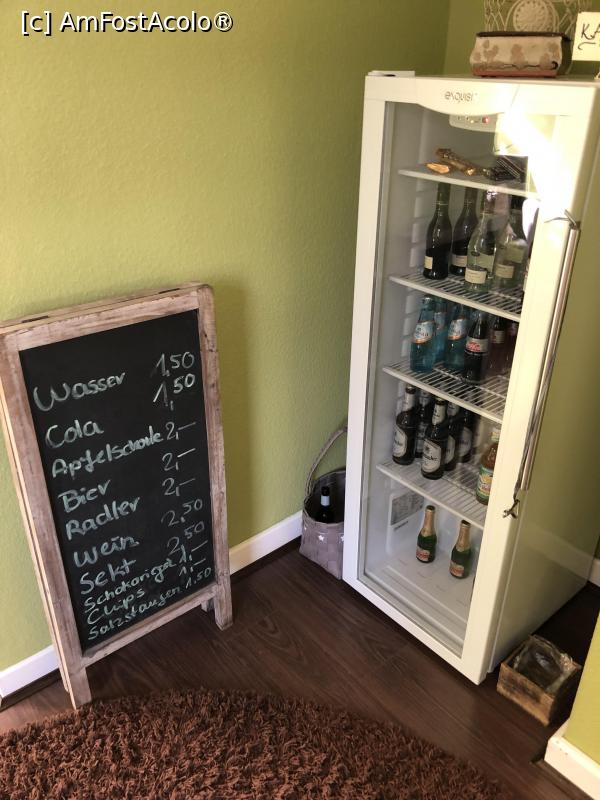 [c] AmFostAcolo®
KA
exquisit
Wasser 1,50
Cola 1,50
Apfelschorle 2,-
Bier 2,-
Radler 2,-
Wein 2,50
Sekt 2,50
Schokoriegel 1,-
Chips 1,-
Salzstangen 1,50